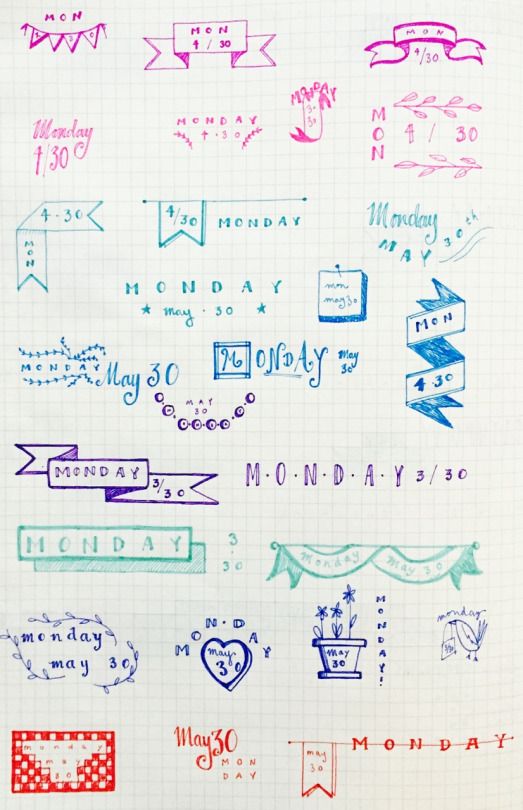 MON
4 30
MON
4/30
MON
4/30
Monday
4/30
MONDAY
4·30
MONDAY
3·
30
MON
4/30
4·30
MON
4/30 MONDAY
Monday
MAY 30th
MONDAY
★ may · 30 ★
mon
may 30
MON
4·30
MONDAY
May 30
MONDAY May
30
MAY
30
MONDAY
3/30
M·O·N·D·A·Y 3/30
MONDAY 3
·
30
Monday May 30
monday
may 30
MONDAY
may
30
may
30
MONDAY!
monday
3/30
monday
may
30
May 30
MON
DAY
may
30
MONDAY